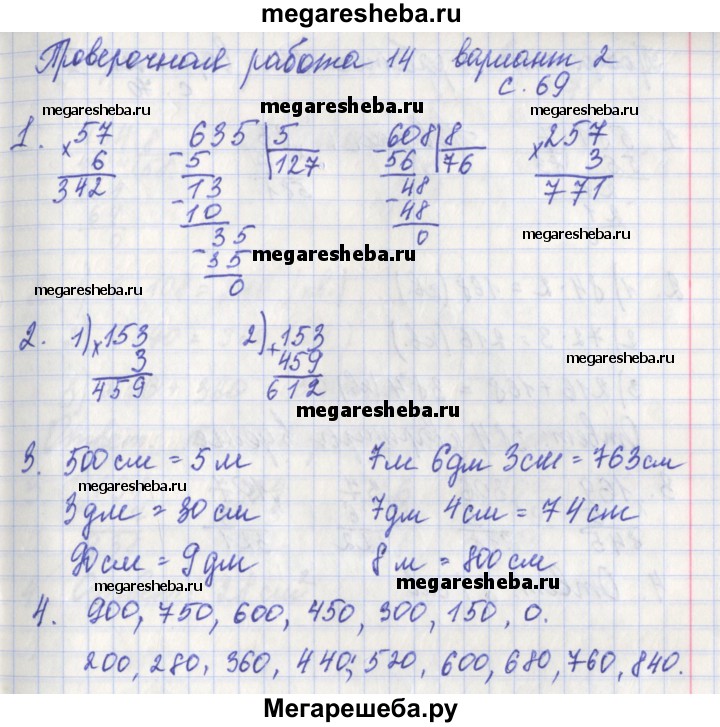 megaresheba.ru
Проверочная работа 14 вариант 2
с. 69
megaresheba.ru megaresheba.ru megaresheba.ru
1. × 57 - 635 | 5 - 608 | 8 × 257
6 5 127 56 76 3
342 - 13 - 48 771
10 48
35 0
- 35
0
megaresheba.ru megaresheba.ru megaresheba.ru
2. 1) × 153 2) + 153
3 459
459 612
megaresheba.ru
megaresheba.ru
3. 500 см = 5 м 7м 6дм 3см = 763см
megaresheba.ru megaresheba.ru
3 дм = 30 см 7дм 4см = 74см
90см = 9 дм 8 м = 800см
megaresheba.ru megaresheba.ru
4. 900, 750, 600, 450, 300, 150, 0.
200, 280, 360, 440; 520, 600, 680, 760, 840.
Мегарешеба.ру